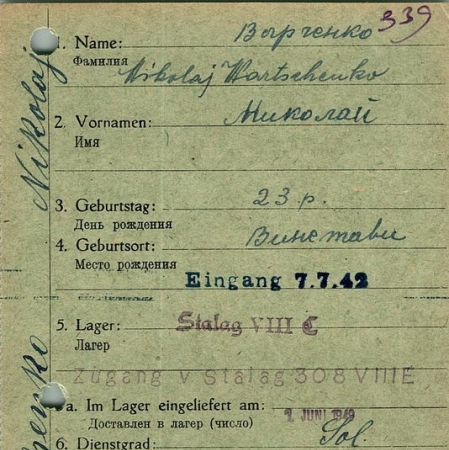 339
1. Name: Варченко
Фамилия Nikolaj Wartschenko
2. Vornamen: Миколай
Имя
3. Geburtstag: 23 р.
День рождения
4. Geburtsort:
Место рождения
Eingang 7.7.42
5. Lager: Stalag VIII C
Лагер
Zugang v Stalag 308 VIII E
a. Im Lager eingeliefert am:
Доставлен в лагер (число) JUNI
6. Dienstgrad: Sol.
Nikolaj
enko